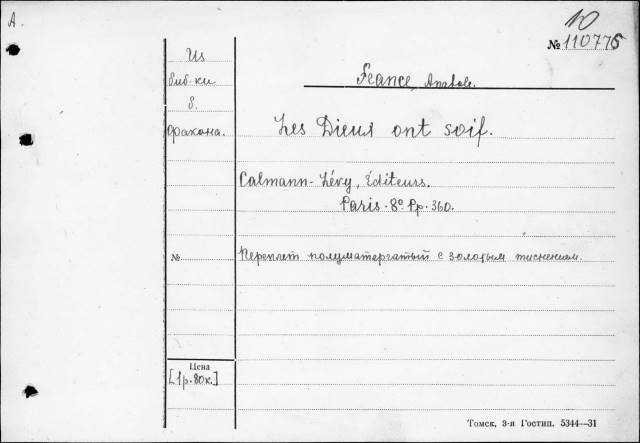 A.
10
№ 110775
Из
биб-ки
б.
France, Anatole.
Les Dieux ont soif.
Calmann-Lévy, Éditeurs.
Paris. 8º. Pp. 360.
№
Переплет полуматерчатый с золотым тиснением.
Цена
[1р. 80к.]
Томск, 3-я Гостип. 5344—31